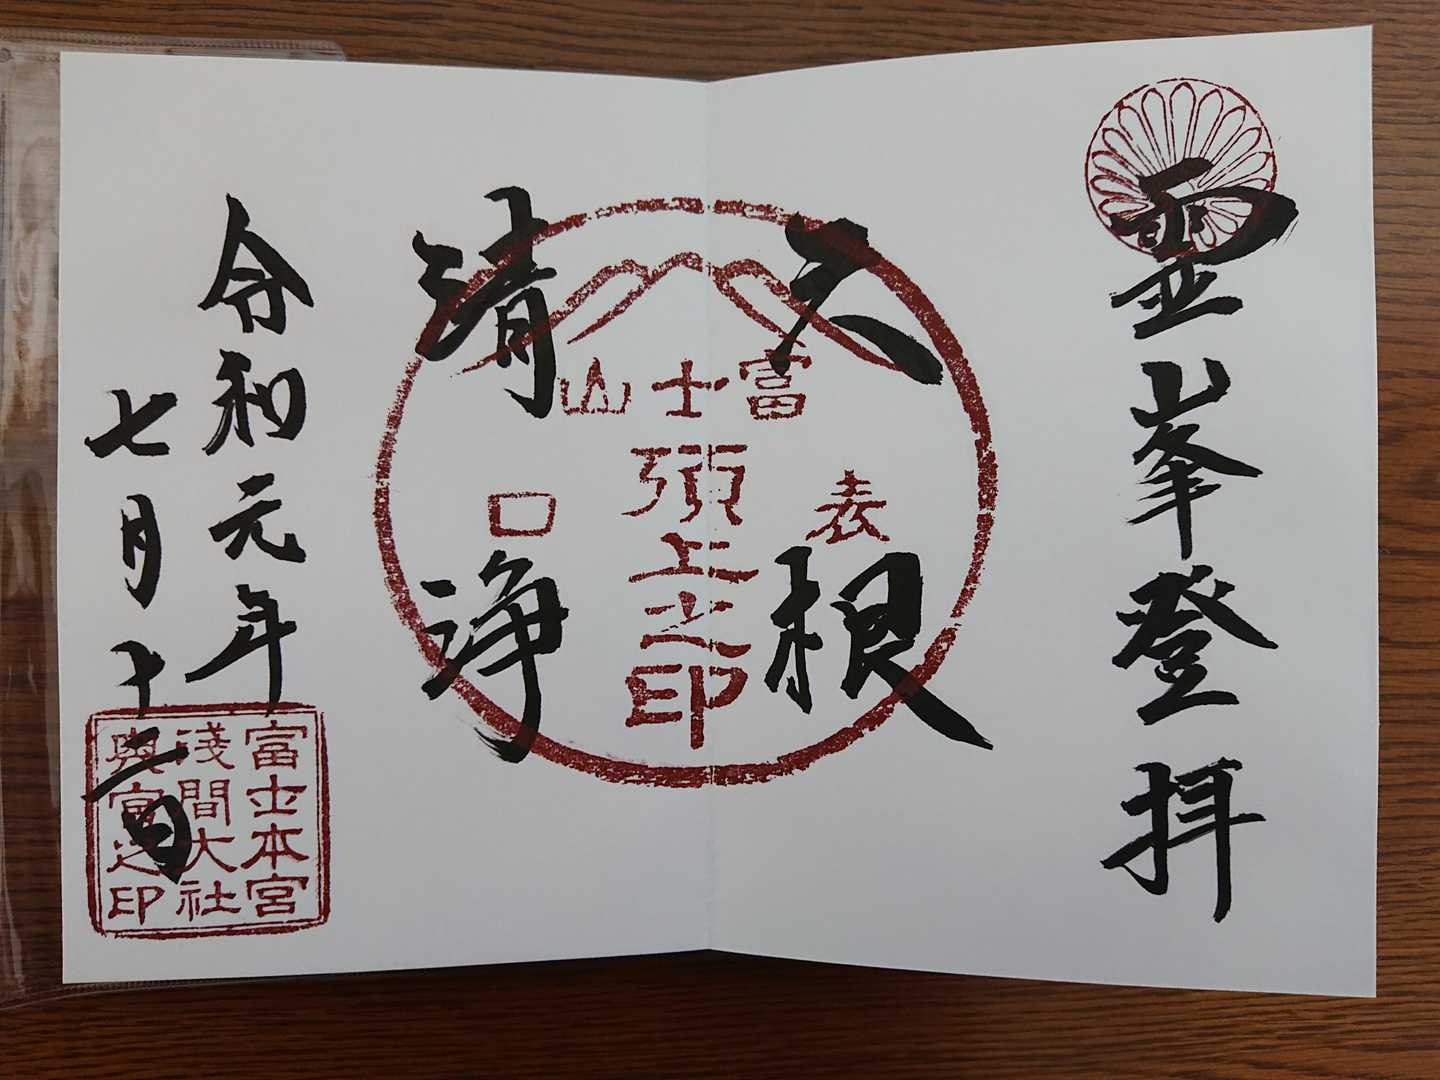 霊峯登拝
六根
清浄
富士山
頂上之印
表口
令和元年
七月十二日
富士本宮
淺間大社
奥宮之印